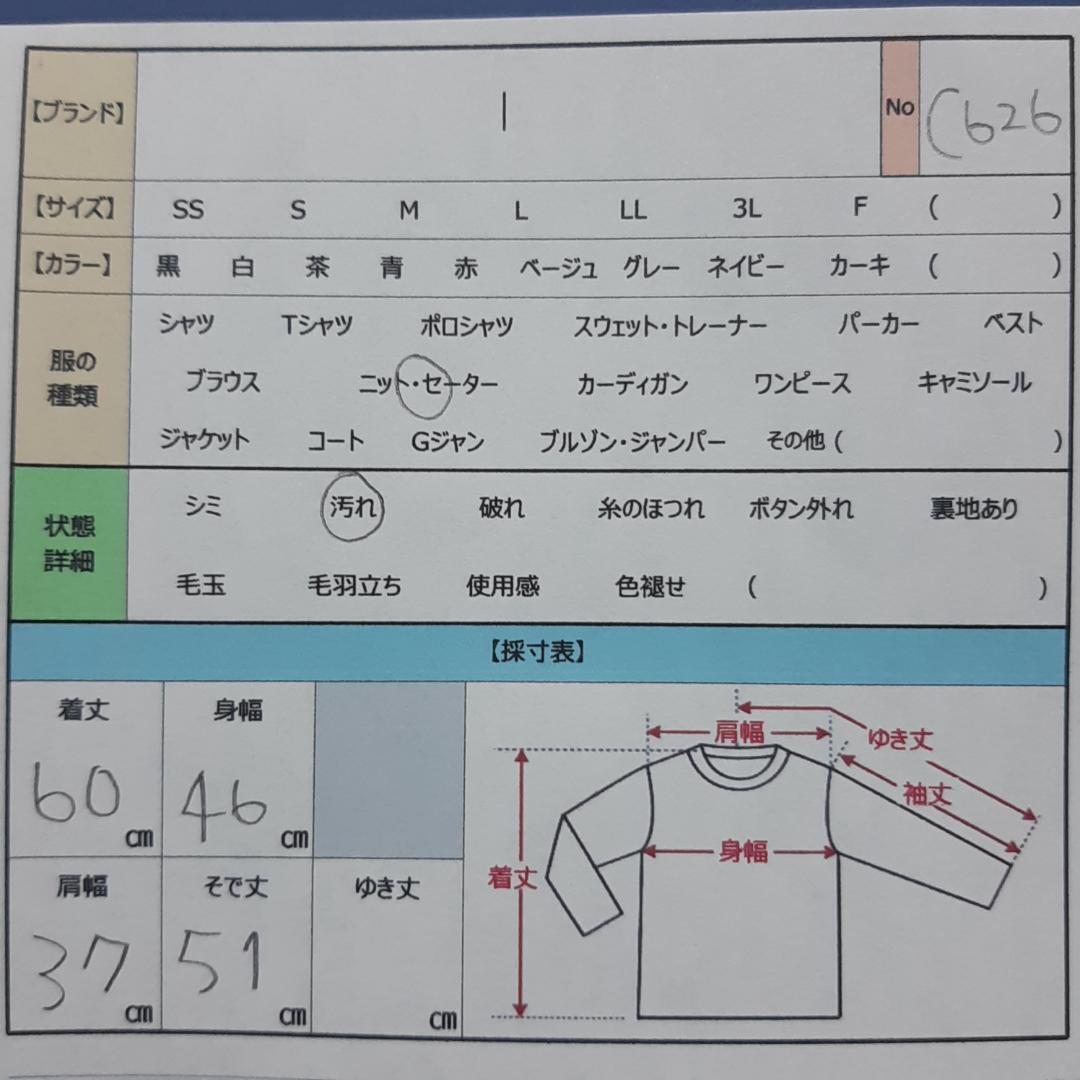 【ブランド】 | No C626
【サイズ】 SS S M L LL 3L F ( )
【カラー】 黒 白 茶 青 赤 ベージュ グレー ネイビー カーキ ( )
服の
種類
シャツ Tシャツ ポロシャツ スウェット・トレーナー パーカー ベスト
ブラウス ニット・セーター カーディガン ワンピース キャミソール
ジャケット コート Gジャン ブルゾン・ジャンパー その他 ( )
状態
詳細
シミ 汚れ 破れ 糸のほつれ ボタン外れ 裏地あり
毛玉 毛羽立ち 使用感 色褪せ ( )
【採寸表】
着丈 身幅
60 cm 46 cm
肩幅 そで丈 ゆき丈
37 cm 51 cm cm
肩幅 ゆき丈
袖丈
身幅
着丈